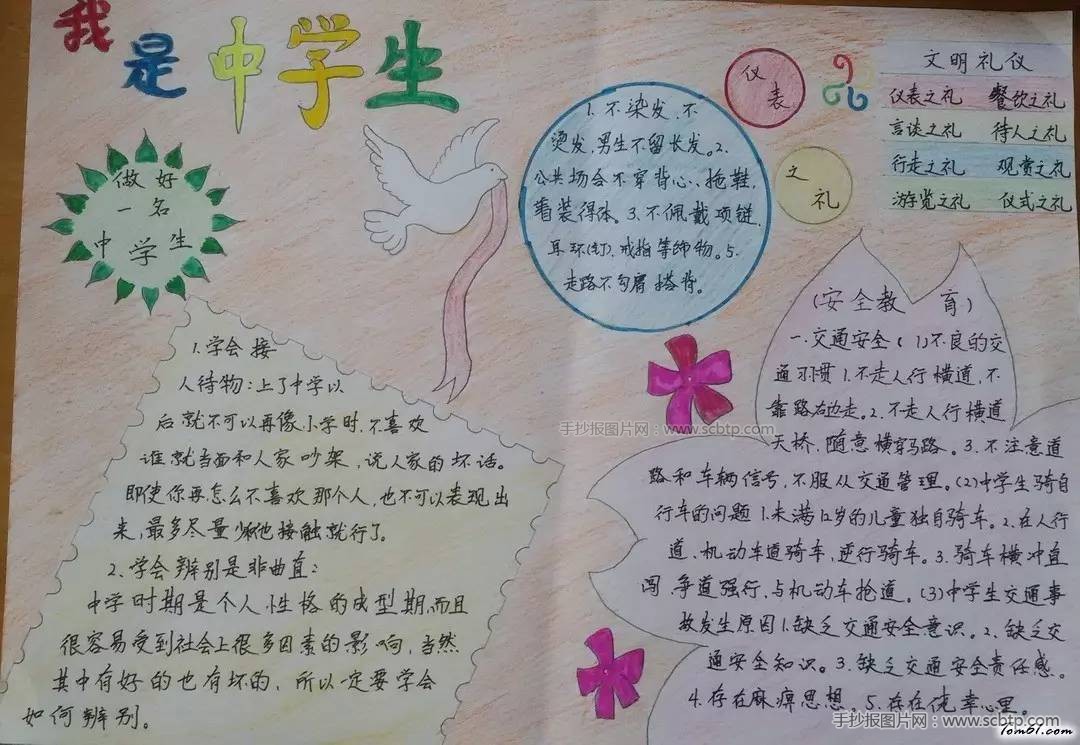 我是中学生
做好
一名
中学生
1.学会接
人待物:上了中学以
后就不可以再像小学时,不喜欢
谁就当面和人家吵架,说人家的坏话。
即使你再怎么不喜欢那个人,也不可以表现出
来,最多尽量少和他接触就行了。
2.学会辨别是非曲直:
中学时期是个人性格的成型期,而且
很容易受到社会上很多因素的影响,当然
其中有好的也有坏的,所以一定要学会
如何辨别。
1.不染发,不
烫发,男生不留长发。2.
公共场合不穿背心、拖鞋,
着装得体。3.不佩戴项链、
耳环(钉)、戒指等饰物。5.
走路不勾肩搭背。
仪
表
之
礼
文明礼仪
仪表之礼 餐饮之礼
言谈之礼 待人之礼
行走之礼 观赏之礼
游览之礼 仪式之礼
(安全教育)
一.交通安全(1)不良的交
通习惯1.不走人行横道,不
靠路右边走。2.不走人行横道
天桥,随意横穿马路。3.不注意道
路和车辆信号,不服从交通管理。(2)中学生骑自
行车的问题1.未满12岁的儿童独自骑车。2.在人行
道、机动车道骑车,逆行骑车。3.骑车横冲直
闯,争道强行,与机动车抢道。(3)中学生交通事
故发生原因1.缺乏交通安全意识。2.缺乏交
通安全知识。3.缺乏交通安全责任感。
4.存在麻痹思想。5.存在侥幸心里。
手抄报图片网:www.scbtp.com
手抄报图片网:www.scbtp.com
Tom61.com